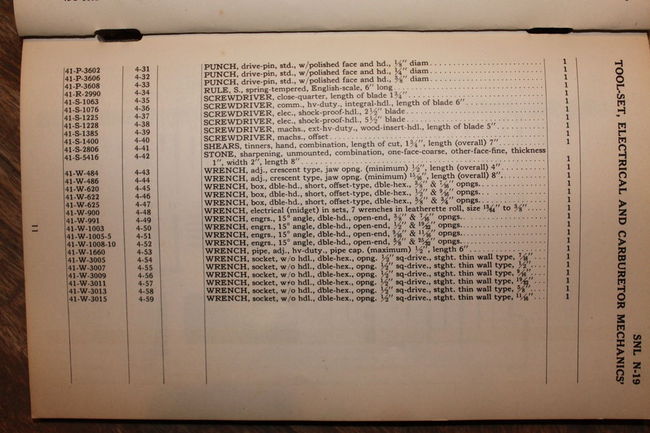 41-P-3602 4-31 PUNCH, drive-pin, std., w/polished face and hd., ⅛" diam. 1
41-P-3606 4-32 PUNCH, drive-pin, std., w/polished face and hd., ¼" diam. 1
41-P-3608 4-33 PUNCH, drive-pin, std., w/polished face and hd., ⅜" diam. 1
41-R-2990 4-34 RULE, S., spring-tempered, English-scale, 6" long 1
41-S-1063 4-35 SCREWDRIVER, close-quarter, length of blade 1¾" 1
41-S-1076 4-36 SCREWDRIVER, comm., hv-duty., integral-hdl., length of blade 6" 1
41-S-1225 4-37 SCREWDRIVER, elec., shock-proof-hdl., 2½" blade 1
41-S-1228 4-38 SCREWDRIVER, elec., shock-proof-hdl., 5½" blade 1
41-S-1385 4-39 SCREWDRIVER, machs., ext-hv-duty., wood-insert-hdl., length of blade 5" 1
41-S-1400 4-40 SCREWDRIVER, machs., offset 1
41-S-2806 4-41 SHEARS, tinners, hand, combination, length of cut, 1¾", length (overall) 7" 1
41-S-5416 4-42 STONE, sharpening, unmounted, combination, one-face-coarse, other-face-fine, thickness
1", width 2", length 8" 1
41-W-484 4-43 WRENCH, adj., crescent type, jaw opng. (minimum) ½", length (overall) 4" 1
41-W-486 4-44 WRENCH, adj., crescent type, jaw opng. (minimum) 15/16", length (overall) 8" 1
41-W-620 4-45 WRENCH, box, dble-hd., short, offset-type, dble-hex., ⅜" & 7/16" opngs. 1
41-W-622 4-46 WRENCH, box, dble-hd., short, offset-type, dble-hex., ½" & 9/16" opngs. 1
41-W-625 4-47 WRENCH, box, dble-hd., short, offset-type, dble-hex., ⅝" & ¾" opngs. 1
41-W-900 4-48 WRENCH, electrical (midget) in sets, 7 wrenches in leatherette roll, size 13/64" to ⅜" 1
41-W-991 4-49 WRENCH, engrs., 15° angle, dble-hd., open-end, ⅜" & 7/16" opngs. 1
41-W-1003 4-50 WRENCH, engrs., 15° angle, dble-hd., open-end, ½" & 19/32" opngs. 1
41-W-1005-5 4-51 WRENCH, engrs., 15° angle, dble-hd., open-end, 9/16" & 11/16" opngs. 1
41-W-1008-10 4-52 WRENCH, engrs., 15° angle, dble-hd., open-end, ⅝" & 25/32" opngs. 1
41-W-1660 4-53 WRENCH, pipe, adj., hv-duty., pipe cap. (maximum) ½", length 6" 1
41-W-3005 4-54 WRENCH, socket, w/o hdl., dble-hex., opng. ½" sq-drive., stght. thin wall type, 7/16" 1
41-W-3007 4-55 WRENCH, socket, w/o hdl., dble-hex., opng. ½" sq-drive., stght. thin wall type, ½" 1
41-W-3009 4-56 WRENCH, socket, w/o hdl., dble-hex., opng. ½" sq-drive., stght. thin wall type, 9/16" 1
41-W-3011 4-57 WRENCH, socket, w/o hdl., dble-hex., opng. ½" sq-drive., stght. thin wall type, 19/32" 1
41-W-3013 4-58 WRENCH, socket, w/o hdl., dble-hex., opng. ½" sq-drive., stght. thin wall type, ⅝" 1
41-W-3015 4-59 WRENCH, socket, w/o hdl., dble-hex., opng. ½" sq-drive., stght. thin wall type, 11/16" 1
11
SNL N-19
TOOL-SET, ELECTRICAL AND CARBURETOR MECHANICS'